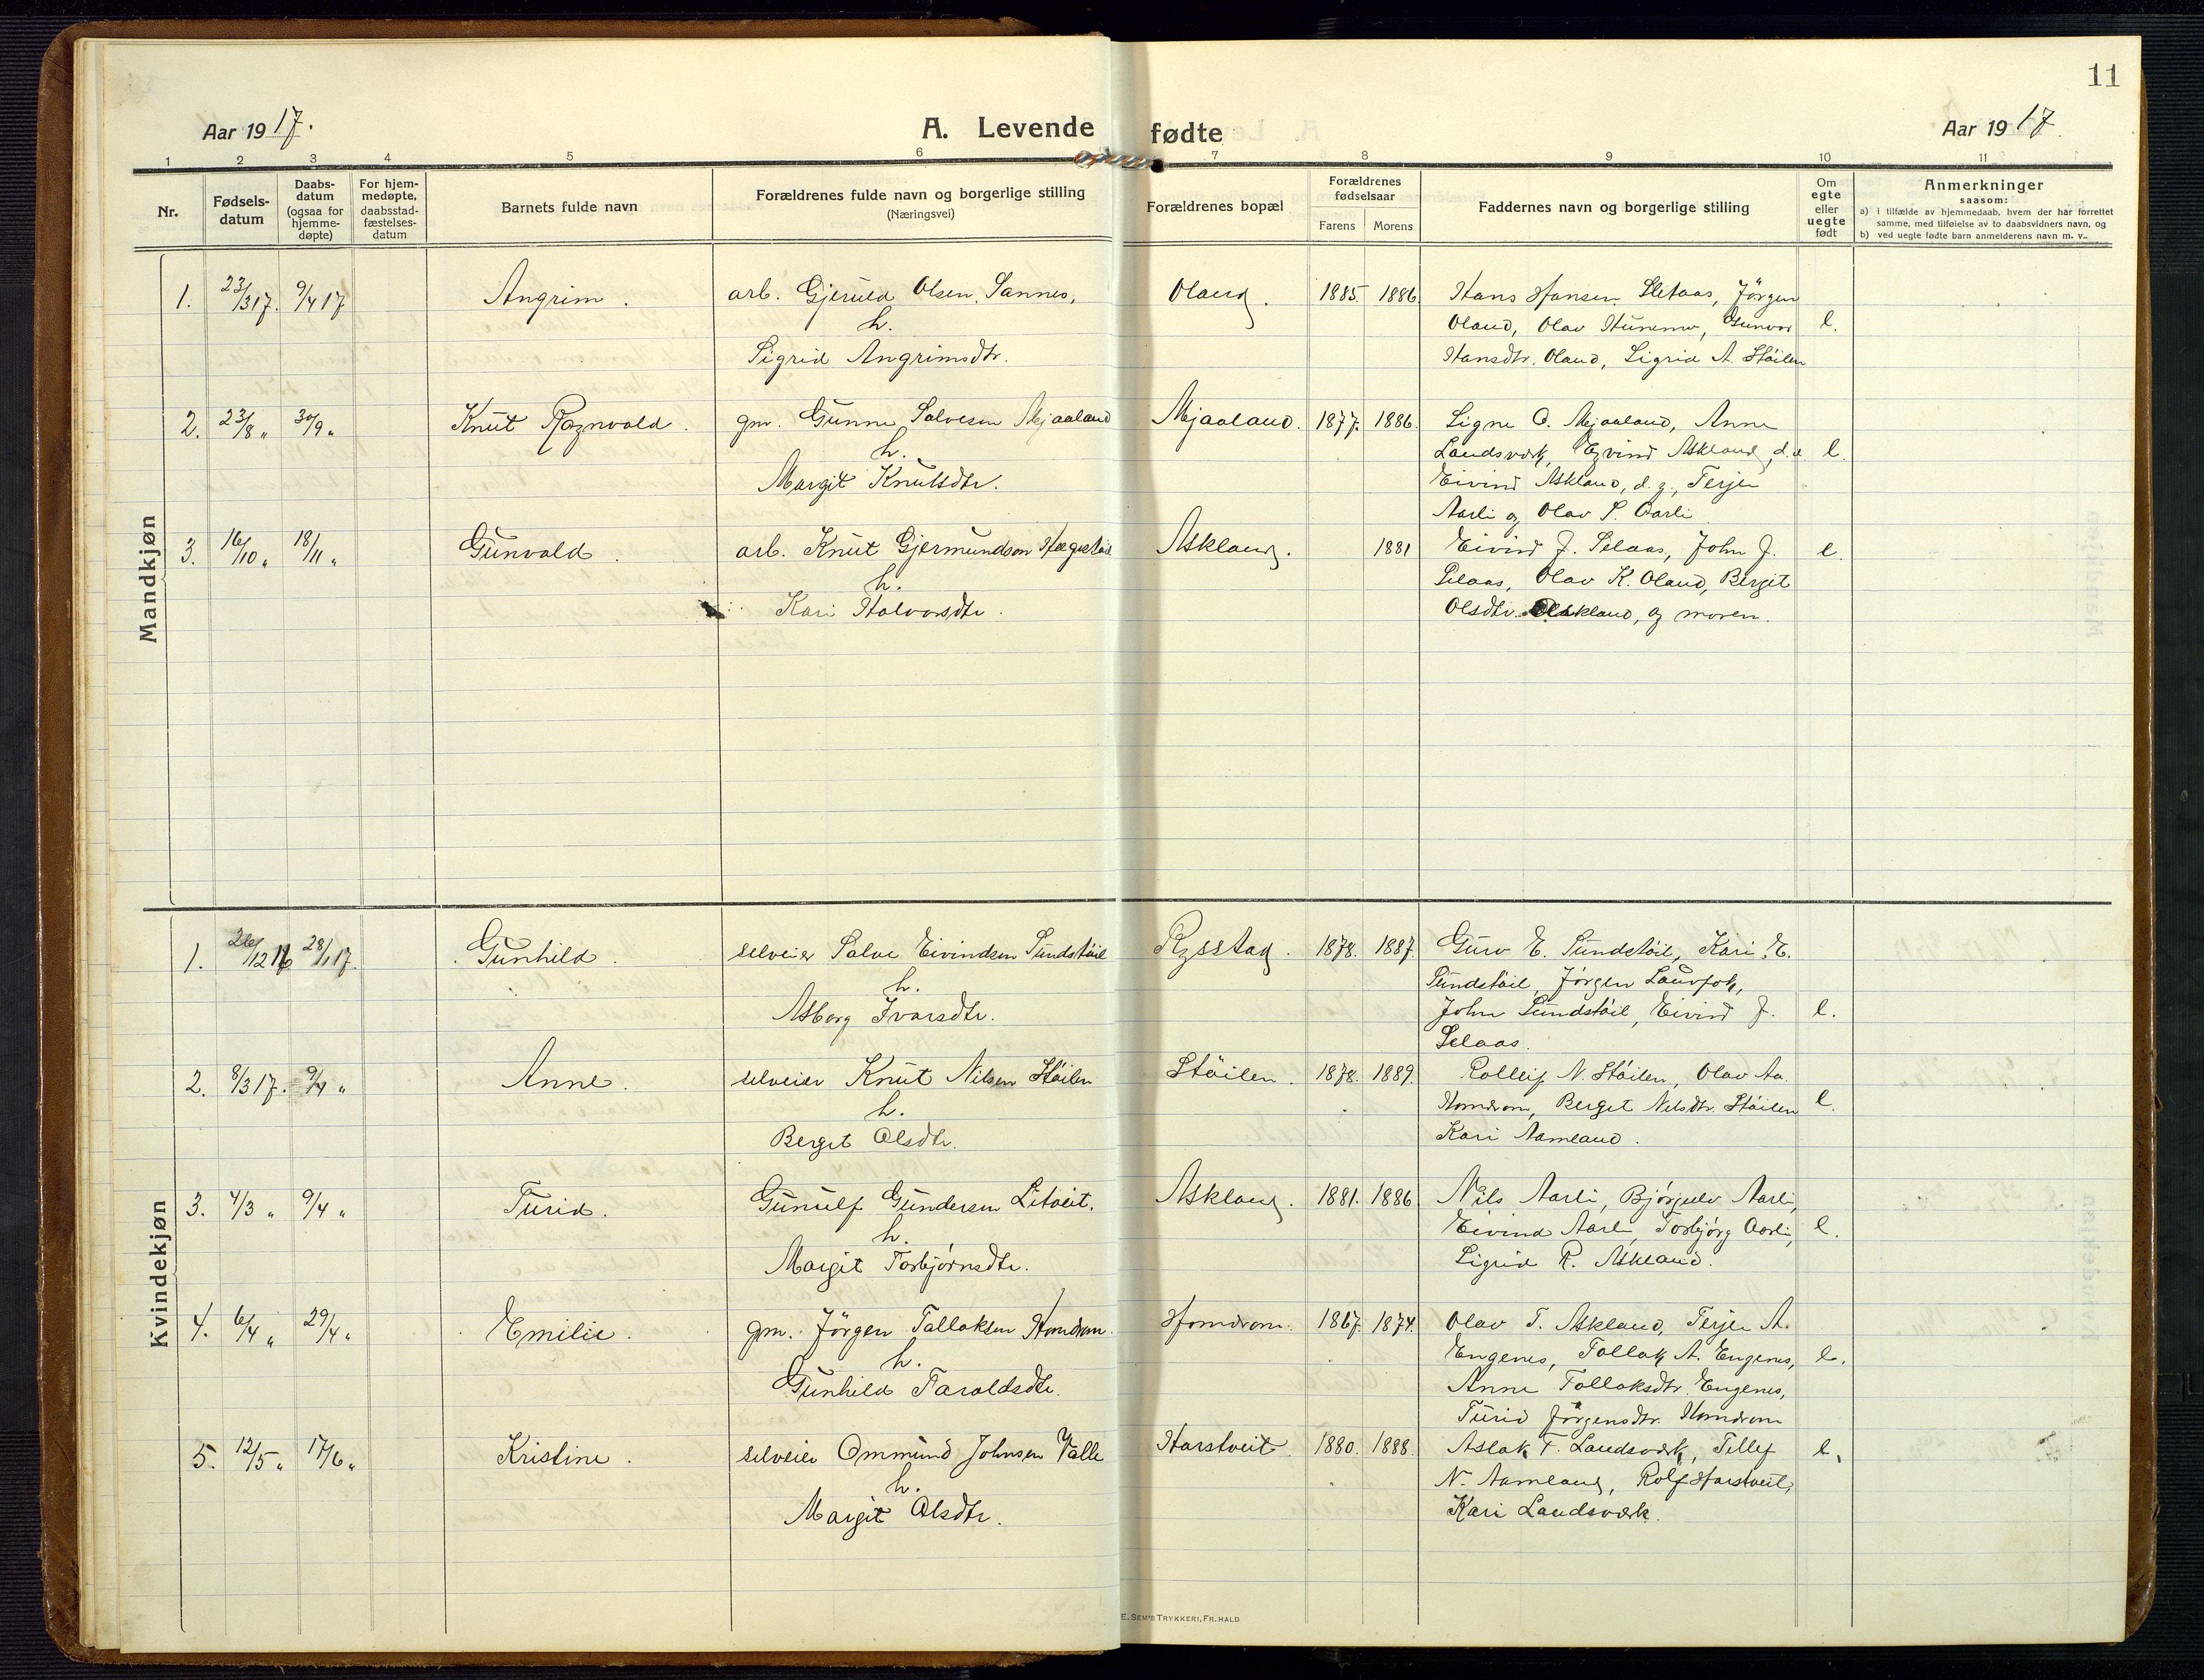 11
Aar 1917.
A. Levende fødte
Aar 1917.
1 2 3 4 5 6 7 8 9 10 11
Nr.
Fødsels-
datum
Daabs-
datum
(ogsaa for
hjemme-
døpte)
For hjem-
medøpte,
daabsstad-
fæstelses-
datum
Barnets fulde navn
Forældrenes fulde navn og borgerlige stilling
(Næringsvei)
Forældrenes bopæl
Forældrenes
fødselsaar
Farens Morens
Faddernes navn og borgerlige stilling
Om
egte
eller
uegte
født
Anmerkninger
saasom:
a) i tilfælde av hjemmedaab, hvem der har forrettet
samme, med tilføielse av to daabsvidners navn, og
b) ved uegte fødte barn anmelderens navn m. v..
Mandkjøn
1. 23/3 17. 9/4 17 Angrim. arb. Gjeruld Olsen Sannes, Oland. 1885. 1886. Hans Hansen Sletaas, Jörgen
h. Oland, Olav Hunemo, Gunvor e.
Sigrid Angrimsdtr. Hansdtr. Oland, Sigrid A. Stöilen
2. 23/8 " 30/9 " Knut Ragnvald. gm. Gunne Salvesen Mjaaland Mjaaland. 1877. 1886. Signe O. Mjaaland, Anne
h. Landsværk, Eyvind Askland, d.e. e.
Margit Knutsdtr. Eivind Askland, d. y., Terje
Aarli og Olav S. Aarli
3. 16/10 " 18/11 " Gunvald. arb. Knut Gjermundson Hægestad Askland. 1881 Eivind J. Selaas, John J. e.
h. Selaas, Olav K. Oland, Bergit
Kari Halvorsdtr. Olsdtr. Askland, og moren.
Kvindekjøn
1. 26/12 16 28/1 17. Gunhild. selveier Salve Eivindsen Sundstöil Rysstad. 1878. 1887. Guro E. Sundstöil, Kari E.
h. Sundstöil, Jörgen Laurfok,
Asborg Ivarsdtr. John Sundstöil, Eivind J. e.
Selaas.
2. 8/3 17. 9/4 " Anne. selveier Knut Nilsen Stöilen Stöilen. 1878. 1889. Rolleif N. Stöilen, Olav Aa.
h. Homdrom, Berget Nilsdtr. Stöilen e.
Berget Olsdtr. Kari Aamland.
3. 4/3 " 9/4 " Turid. Gunulf Gundersen Litveit. Askland. 1881. 1886. Nils Aarli, Bjørgulv Aarli,
h. Eivind Aarli, Torbjørg Aarli, e.
Margit Torbjørnsdtr. Sigrid R. Askland.
4. 6/4 " 29/4 " Emilie. gm. Jörgen Tallaksen Homdrom. Homdrom. 1867. 1874. Olav T. Askland, Terje A.
h. Engenes, Tallak A. Engenes, e.
Gunhild Taraldsdtr. Anne Tallaksdtr. Engenes,
Turid Jörgensdtr. Homdrom
5. 12/5 " 17/6 " Kristine. selveier Ommund Johnsen Valle Harstveit. 1880. 1888. Aslak T. Landsværk, Tellef e.
h. N. Aamland, Rolf Harstveit,
Margit Olsdtr. Kari Landsværk.
E. SEM'S TRYKKERI, FR. HALD